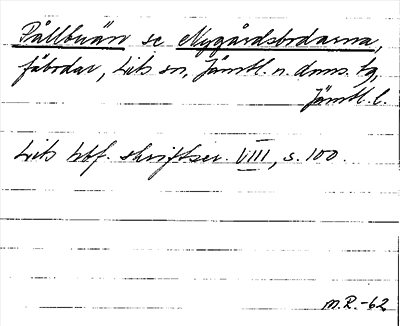 Pållbuän se Mygårdsbodarna,
fäbodar, Lits sn, Jämtl. n. doms. tg,
Jämtl. l.
Lits hbf. skriftser. VIII, s. 100.
M.R.-62